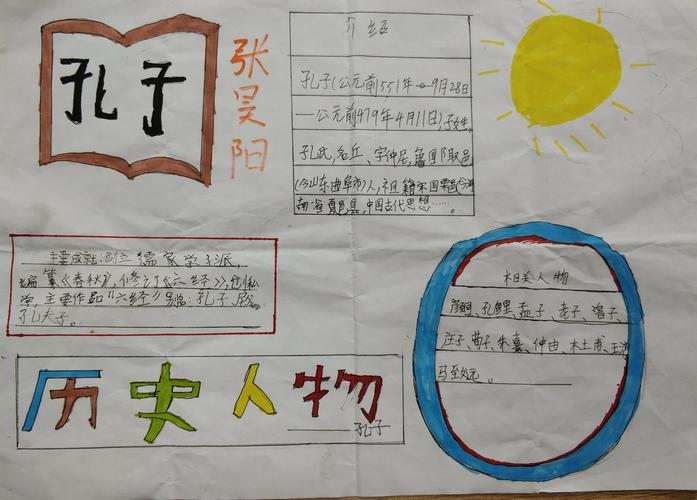 孔子
张昊阳
介绍
孔子(公元前551年9月28日
—公元前479年4月11日),子姓,
孔氏,名丘,字仲尼,鲁国陬邑
(今山东曲阜市)人,祖籍宋国栗邑(今河
南省夏邑县,中国古代思想……
主要成就:创立儒家学派,
编纂《春秋》,修订《六经》,创私
学,主要作品"六经"别名:孔子、尼父
孔夫子。
相关人物
颜回、孔鲤、孟子、老子、曾子、
庄子、荀子、朱熹、仲由、木土甫、王
马至远。
历史人物
——孔子